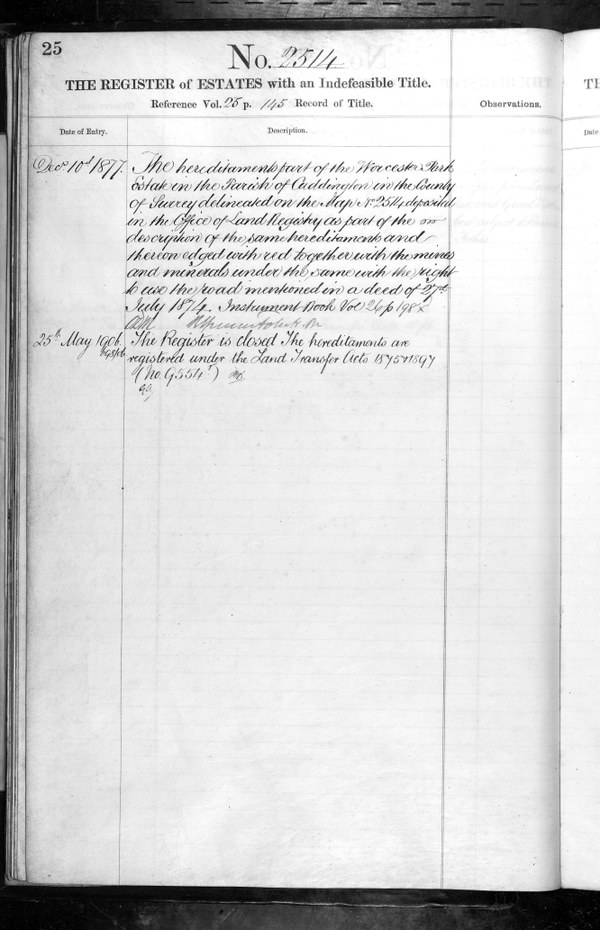 25
No. 2514
THE REGISTER of ESTATES with an Indefeasible Title.
Reference Vol. 25 p. 145 Record of Title.
Observations.
Date of Entry.
Description.
Decr 10th 1877.
The hereditaments part of the Worcester Park
Estate in the Parish of Cuddington in the County
of Surrey delineated on the Map No 2514 deposited
in the Office of Land Registry as part of the
description of the same hereditaments and
thereon edged with red together with the mines
and minerals under the same with the right
to use the road mentioned in a deed of 27th
July 1874. Instrument Book Vol 26 p 198
25th May 1906.
The Register is closed The hereditaments are
registered under the Land Transfer Acts 1875 & 1897
(No. 9554)
TH
Date